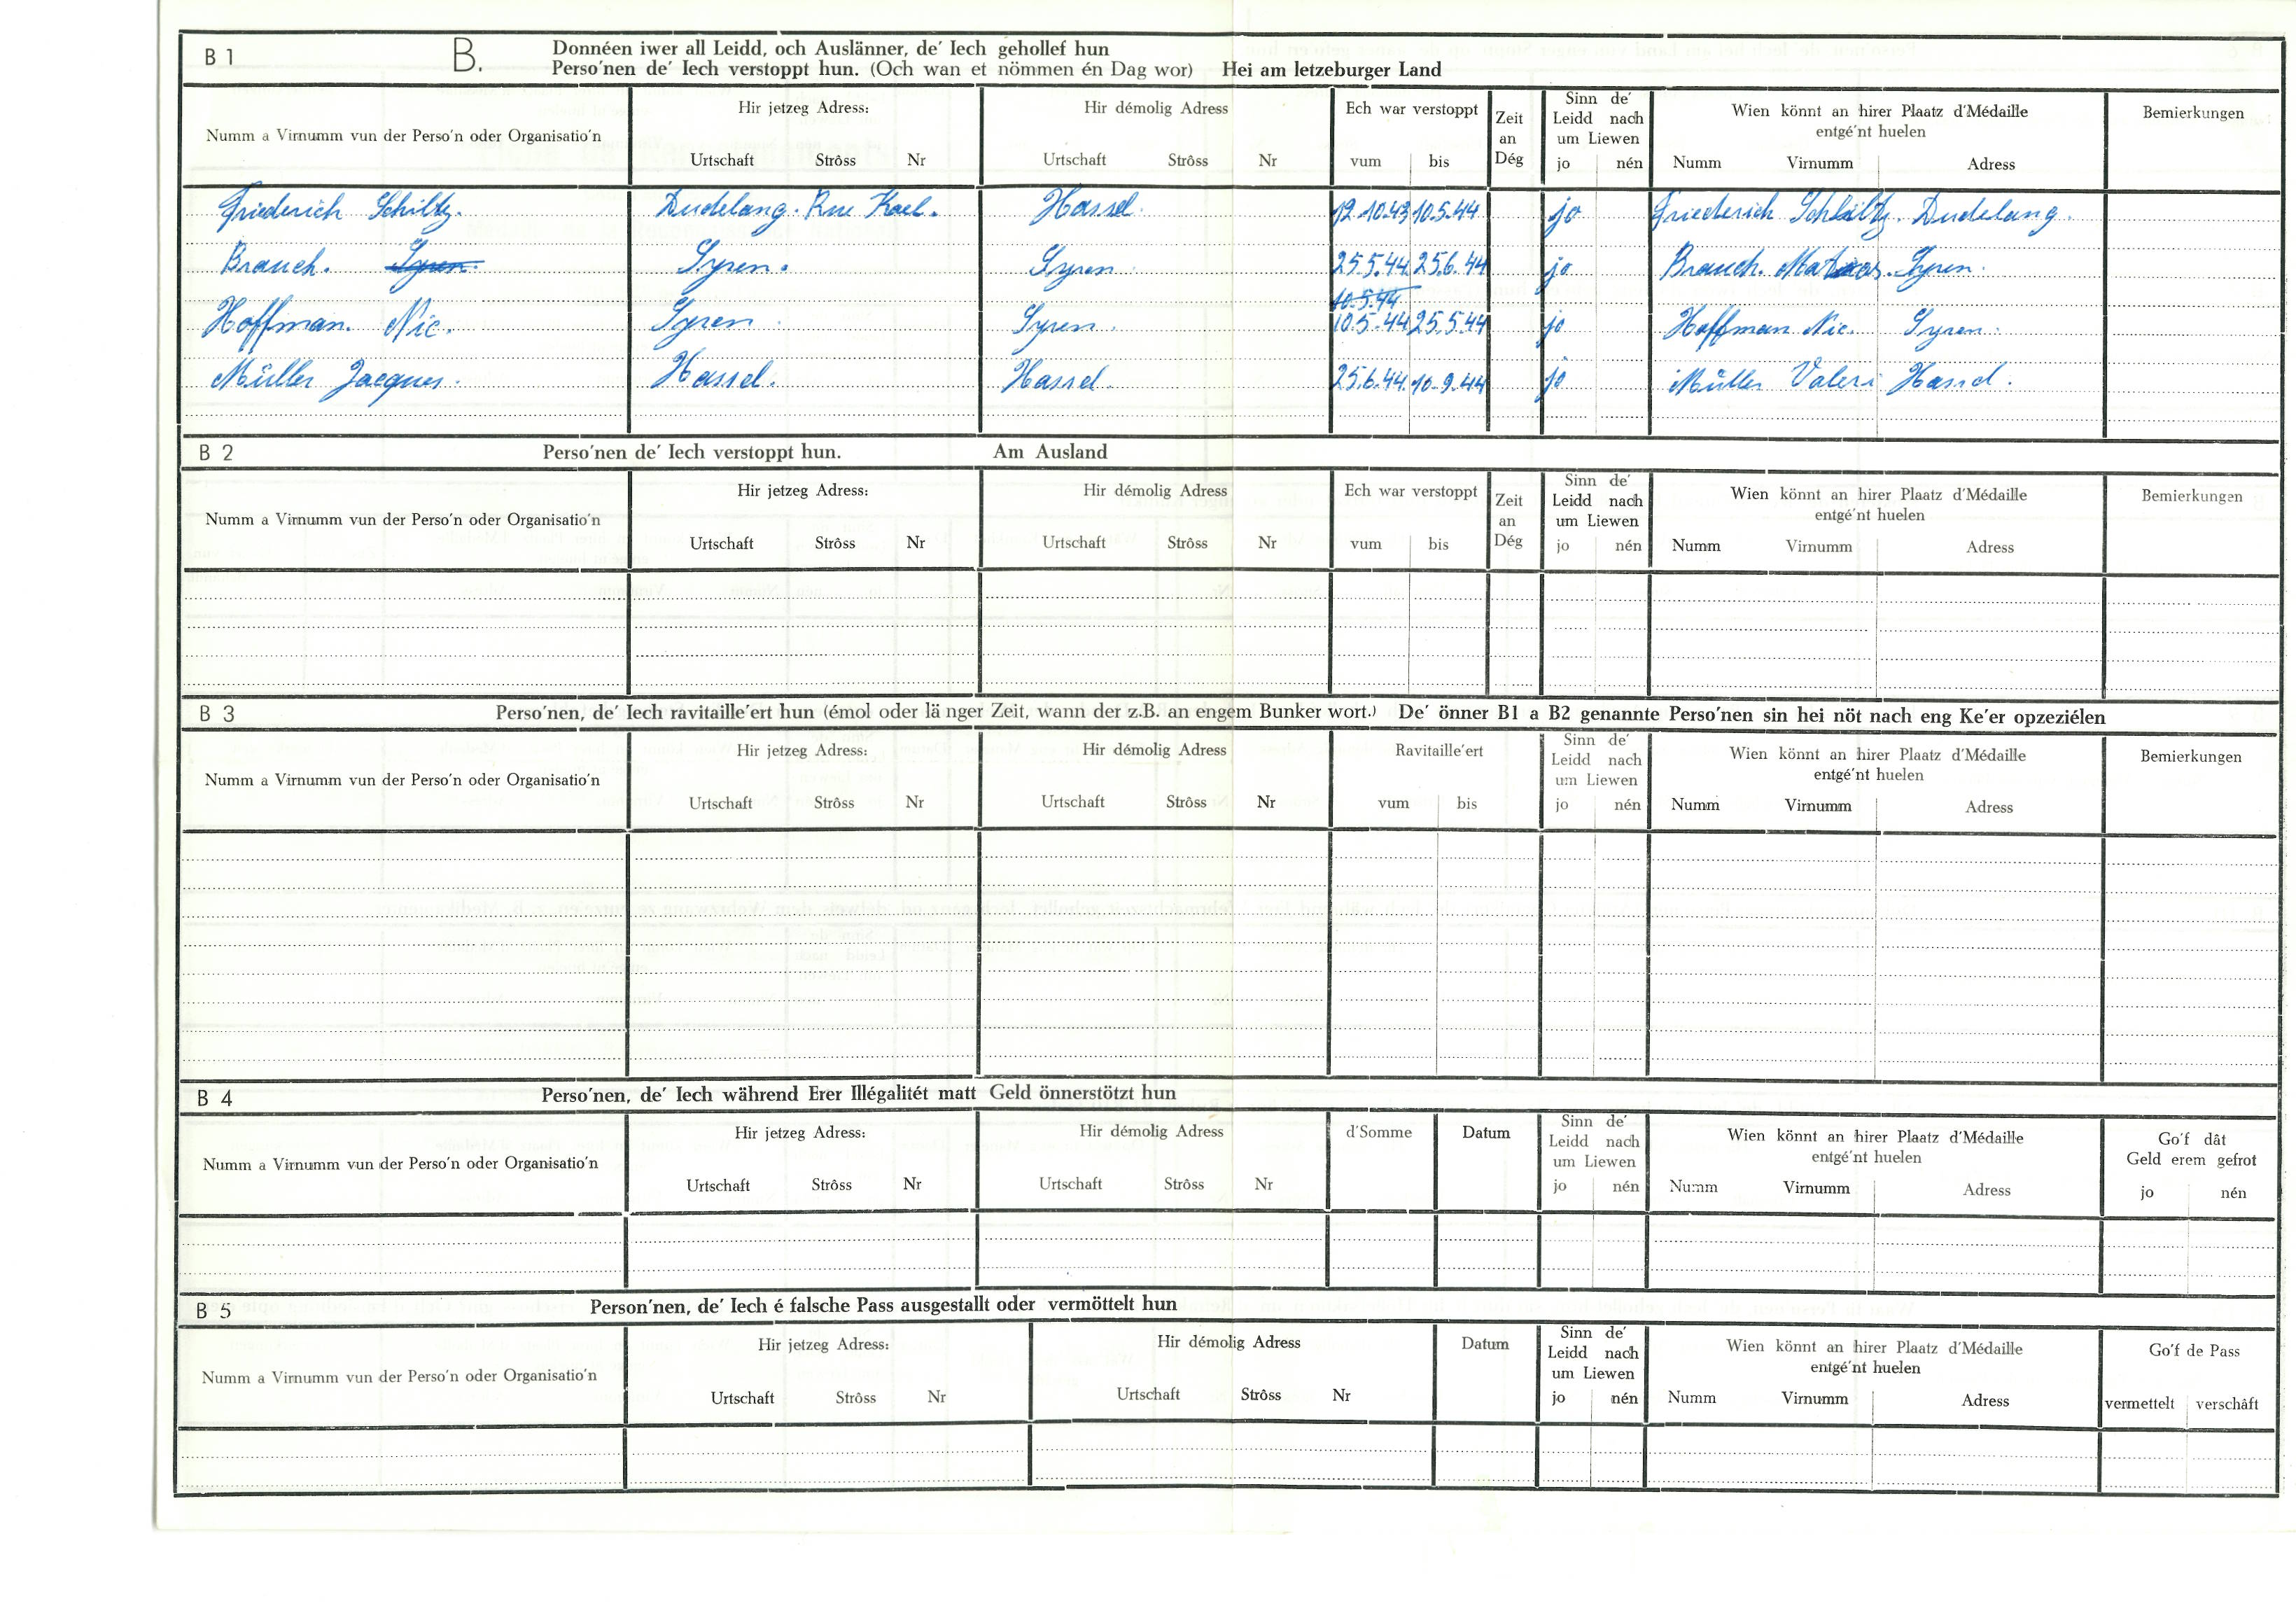 B 1 B. Donnéen iwer all Leidd, och Auslänner, de' Iech gehollef hun
Perso'nen de' Iech verstoppt hun. (Och wan et nömmen én Dag wor) Hei am letzeburger Land
Numm a Virnumm vun der Perso'n oder Organisatio'n
Hir jetzeg Adress:
Urtschaft Strôss Nr
Hir démolig Adress
Urtschaft Strôss Nr
Ech war verstoppt
vum bis
Zeit
an
Dég
Sinn de'
Leidd nach
um Liewen
jo nén
Wien könnt an hirer Plaatz d'Médaille
entgé'nt huelen
Numm Virnumm Adress
Bemierkungen
Friederich Schiltz. Dudelang. Rue Kael. Hassel. 12.10.43 10.5.44 jo Friederich Schiltz. Dudelang.
Brauch. Syren. Syren. Syren. 25.5.44 25.6.44 jo Brauch. Syren.
10.5.44
Hoffman. Nic. Syren. Syren. 10.5.44 25.5.44 jo Hoffman Nic. Syren.
Müller Jacques. Hassel. Hassel. 25.6.44 10.9.44 jo Müller Valeri Hassel.
B 2 Perso'nen de' Iech verstoppt hun. Am Ausland
Numm a Virnumm vun der Perso'n oder Organisatio'n
Hir jetzeg Adress:
Urtschaft Strôss Nr
Hir démolig Adress
Urtschaft Strôss Nr
Ech war verstoppt
vum bis
Zeit
an
Dég
Sinn de'
Leidd nach
um Liewen
jo nén
Wien könnt an hirer Plaatz d'Médaille
entgé'nt huelen
Numm Virnumm Adress
Bemierkungen
B 3 Perso'nen, de' Iech ravitaille'ert hun (émol oder lä nger Zeit, wann der z.B. an engem Bunker wort.) De' önner B1 a B2 genannte Perso'nen sin hei nöt nach eng Ke'er opzeziélen
Numm a Virnumm vun der Perso'n oder Organisatio'n
Hir jetzeg Adress:
Urtschaft Strôss Nr
Hir démolig Adress
Urtschaft Strôss Nr
Ravitaille'ert
vum bis
Sinn de'
Leidd nach
um Liewen
jo nén
Wien könnt an hirer Plaatz d'Médaille
entgé'nt huelen
Numm Virnumm Adress
Bemierkungen
B 4 Perso'nen, de' Iech während Erer Illégalitét matt Geld önnerstötzt hun
Numm a Virnumm vun der Perso'n oder Organisatio'n
Hir jetzeg Adress:
Urtschaft Strôss Nr
Hir démolig Adress
Urtschaft Strôss Nr
d'Somme
Datum
Sinn de'
Leidd nach
um Liewen
jo nén
Wien könnt an hirer Plaatz d'Médaille
entgé'nt huelen
Numm Virnumm Adress
Go'f dât
Geld erem gefrot
jo nén
B 5 Person'nen, de' Iech é falsche Pass ausgestallt oder vermöttelt hun
Numm a Virnumm vun der Perso'n oder Organisatio'n
Hir jetzeg Adress:
Urtschaft Strôss Nr
Hir démolig Adress
Urtschaft Strôss Nr
Datum
Sinn de'
Leidd nach
um Liewen
jo nén
Wien könnt an hirer Plaatz d'Médaille
entgé'nt huelen
Numm Virnumm Adress
Go'f de Pass
vermettelt verschâft